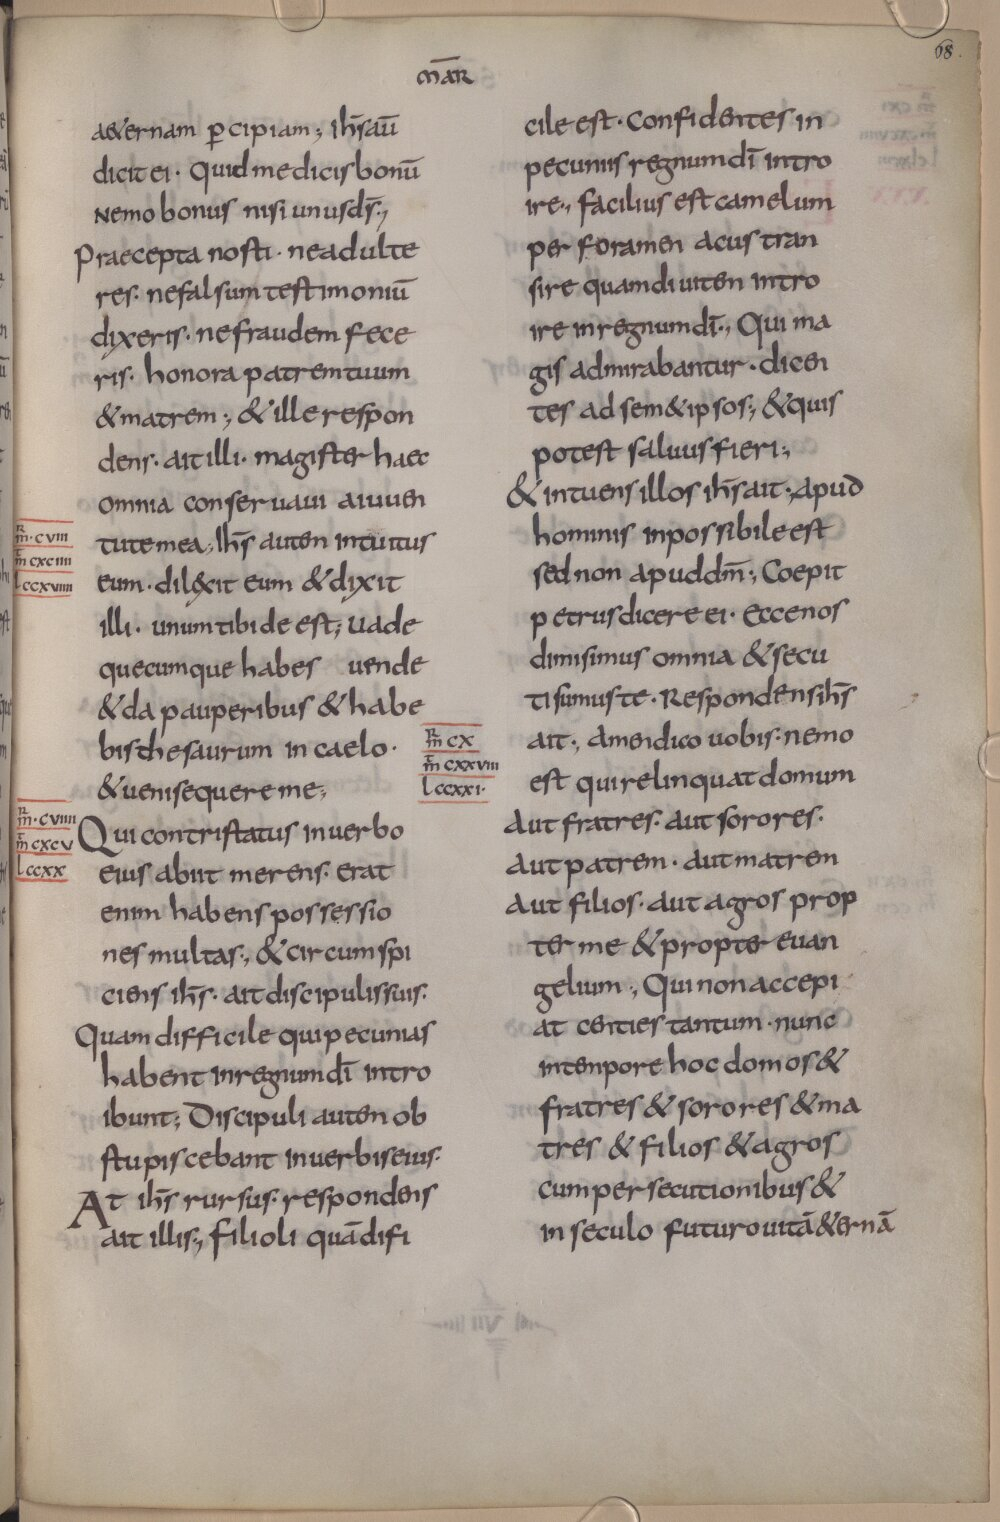 68.
MAR̅
a&ernam p̱cipiam; ih̅s aū
dicit ei · Quid me dicis bonū
Nemo bonus nisi unus ds̅.,
Praecepta nosti · ne adulte
res · ne falsum testimoniū
dixeris · ne fraudem fece
ris · honora patrem tuum
& matrem ; & ille respon
dens · ait illi · magister haec
omnia conseruaui a iuuen
tute mea ; Ih̅s autem intuitus
eum · dilexit eum & dixit
illi · unum tibi de est ; uade
quecumque habes uende
& da pauperibus & habe
bis thesaurum in caelo ·
& ueni sequere me ;
Qui contristatus in uerbo
eius abiit merens · erat
enim habens possessio
nes multas ., & circumspi
ciens ih̅s · ait discipulis suis ·
Quam difficile qui pecunias
habent in regnum dī intro
ibunt ; Discipuli autem ob
stupiscebant in uerbis eius ·
At ih̅s rursus · respondens
ait illis ; filioli quā difi
R m̅ · CVIII
T m CXCIIII
L CCXVIIII
R m̅ · CVIIII
T m CXCV
L CCXX
cile est · Confidentes in
pecuniis regnum dī intro
ire ., facilius est camelum
per foramen acus tran
sire quam diuitem intro
ire in regnum dī ., Qui ma
gis admirabantur · dicen
tes ad sem&ipsos ; & quis
potest saluus fieri ;
& intuens illos ih̅s ait ; Apud
hominis inpossibile est
sed non apud dm̅ ; Coepit
petrus dicere ei · Ecce nos
dimisimus omnia & secu
ti sumus te · Respondens ih̅s
ait ., Amen dico uobis · nemo
est qui relinquat domum
Aut fratres · aut sorores ·
Aut patrem · aut matrem
Aut filios · aut agros prop
ter me & propter euan
gelium ., Qui non accepi
at centies tantum · nunc
in tempore hoc domos &
fratres & sorores & ma
tres & filios & agros
cum persecutionibus &
in seculo futuro uitā &ernā
R m̅ CX
T m CXXVIII
L CCXXI ·